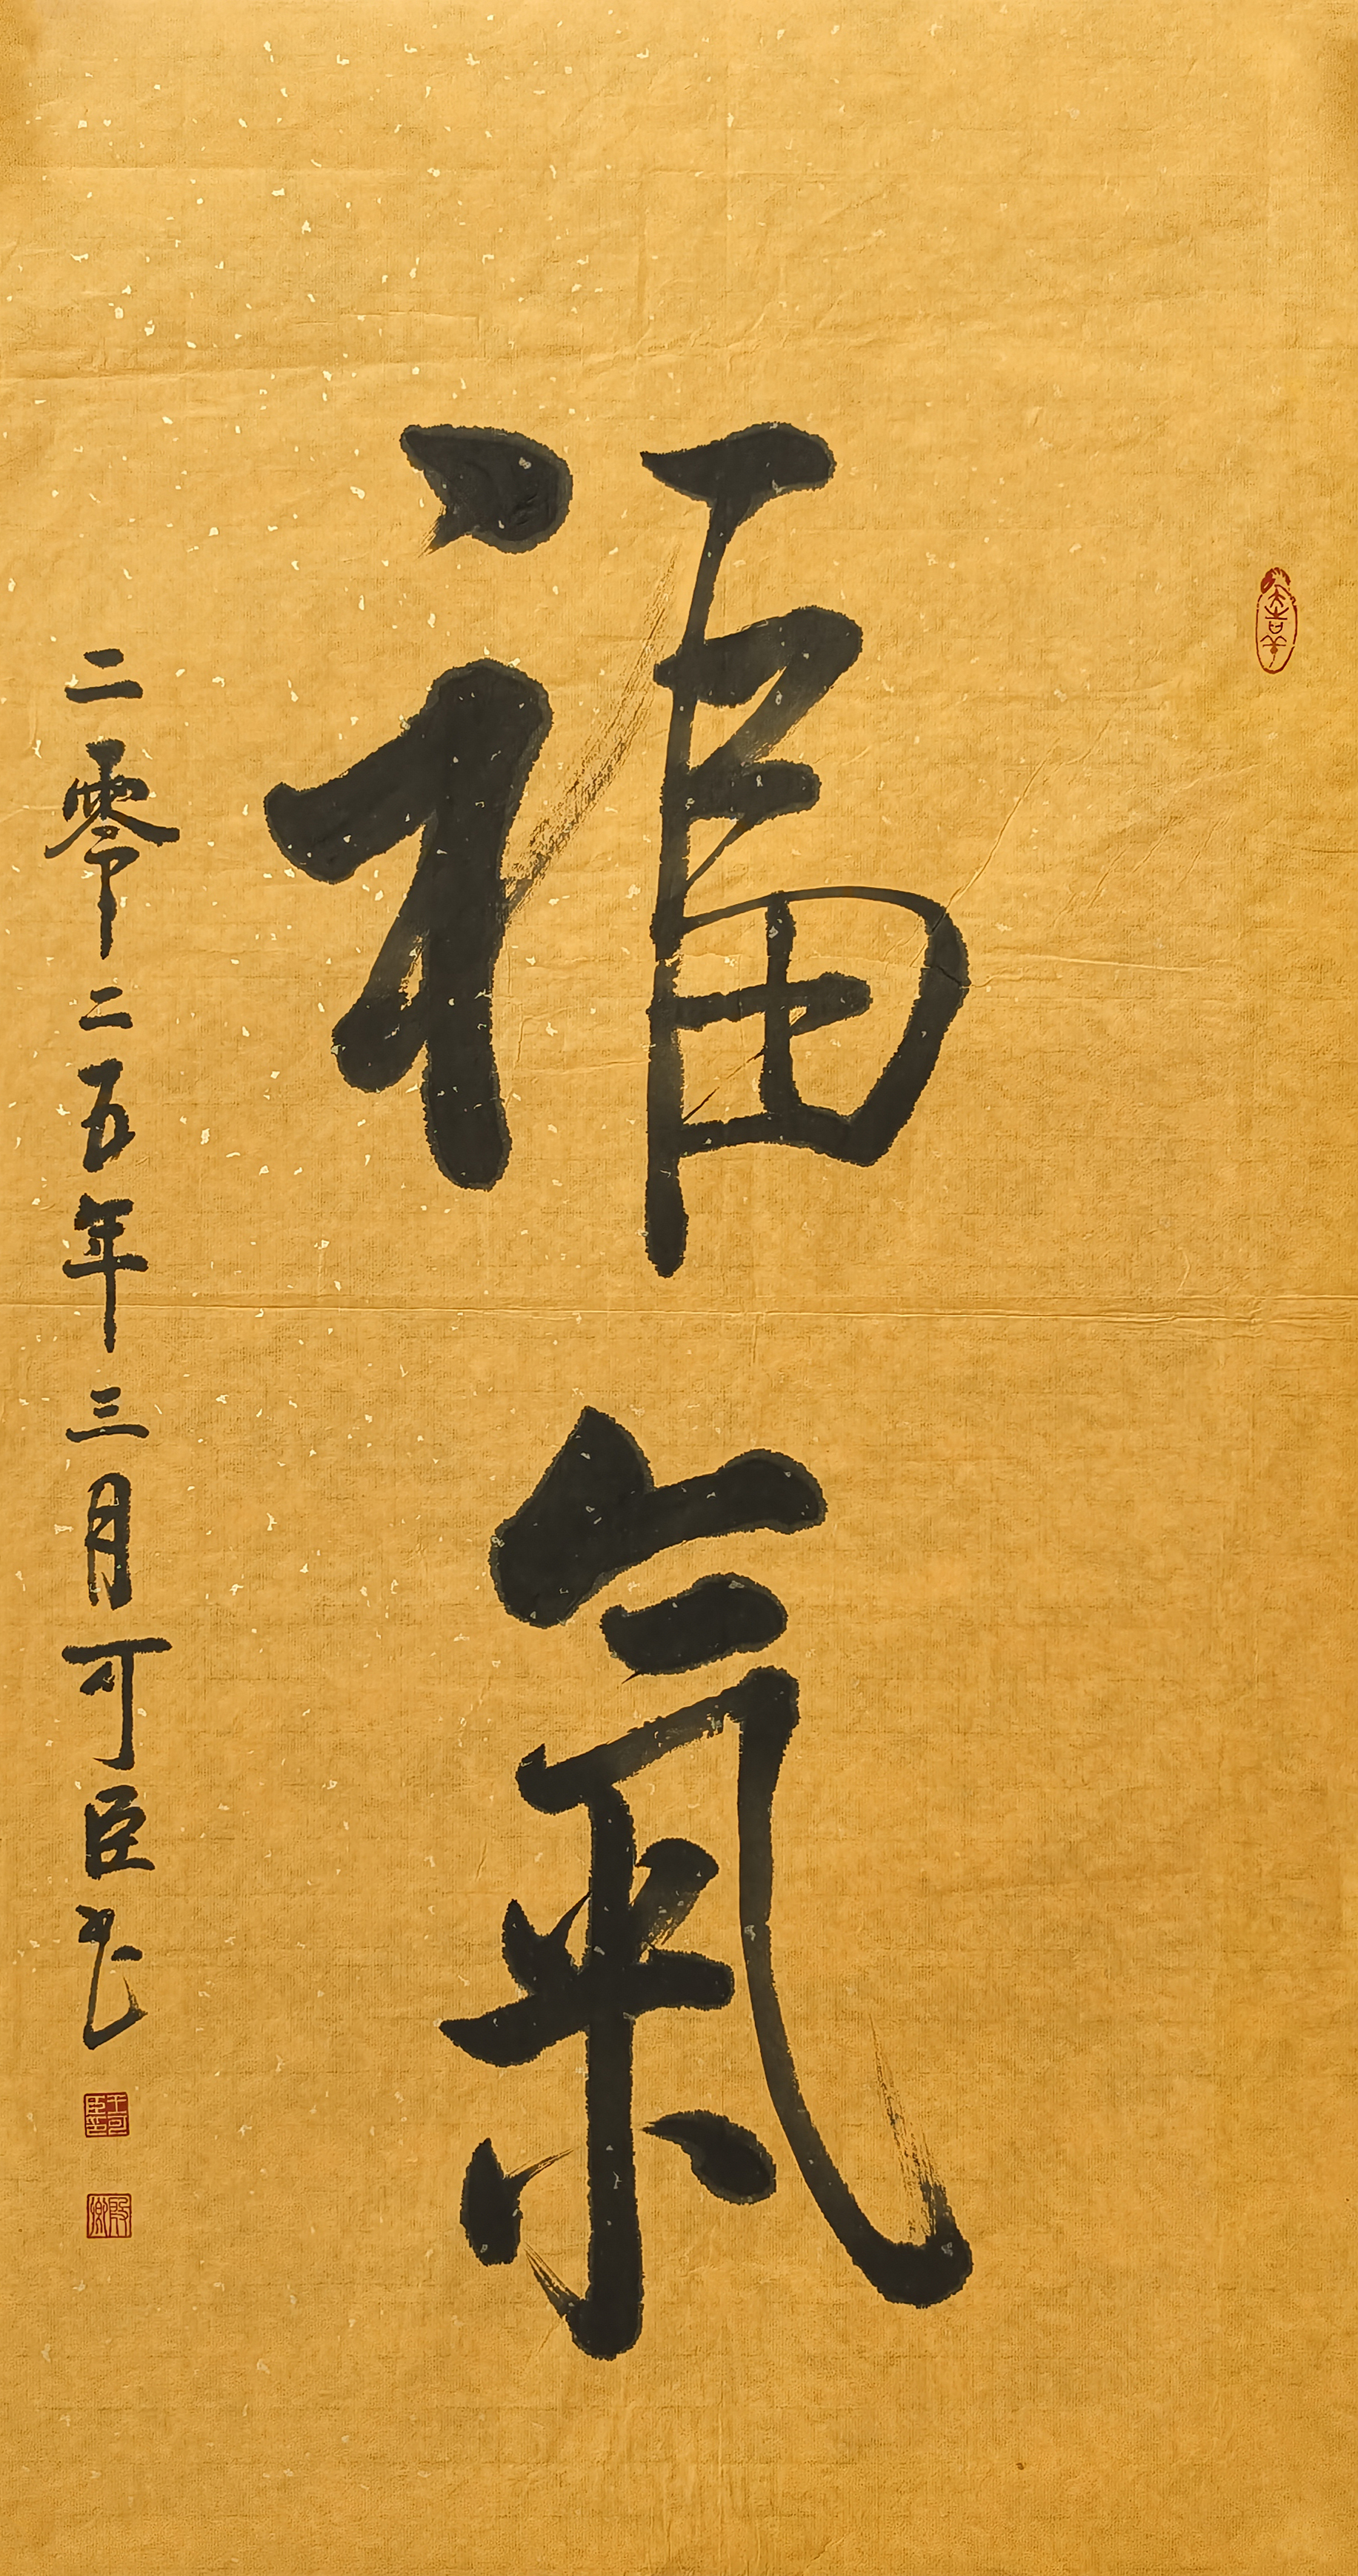 福氣
二零二五年三月可臣書